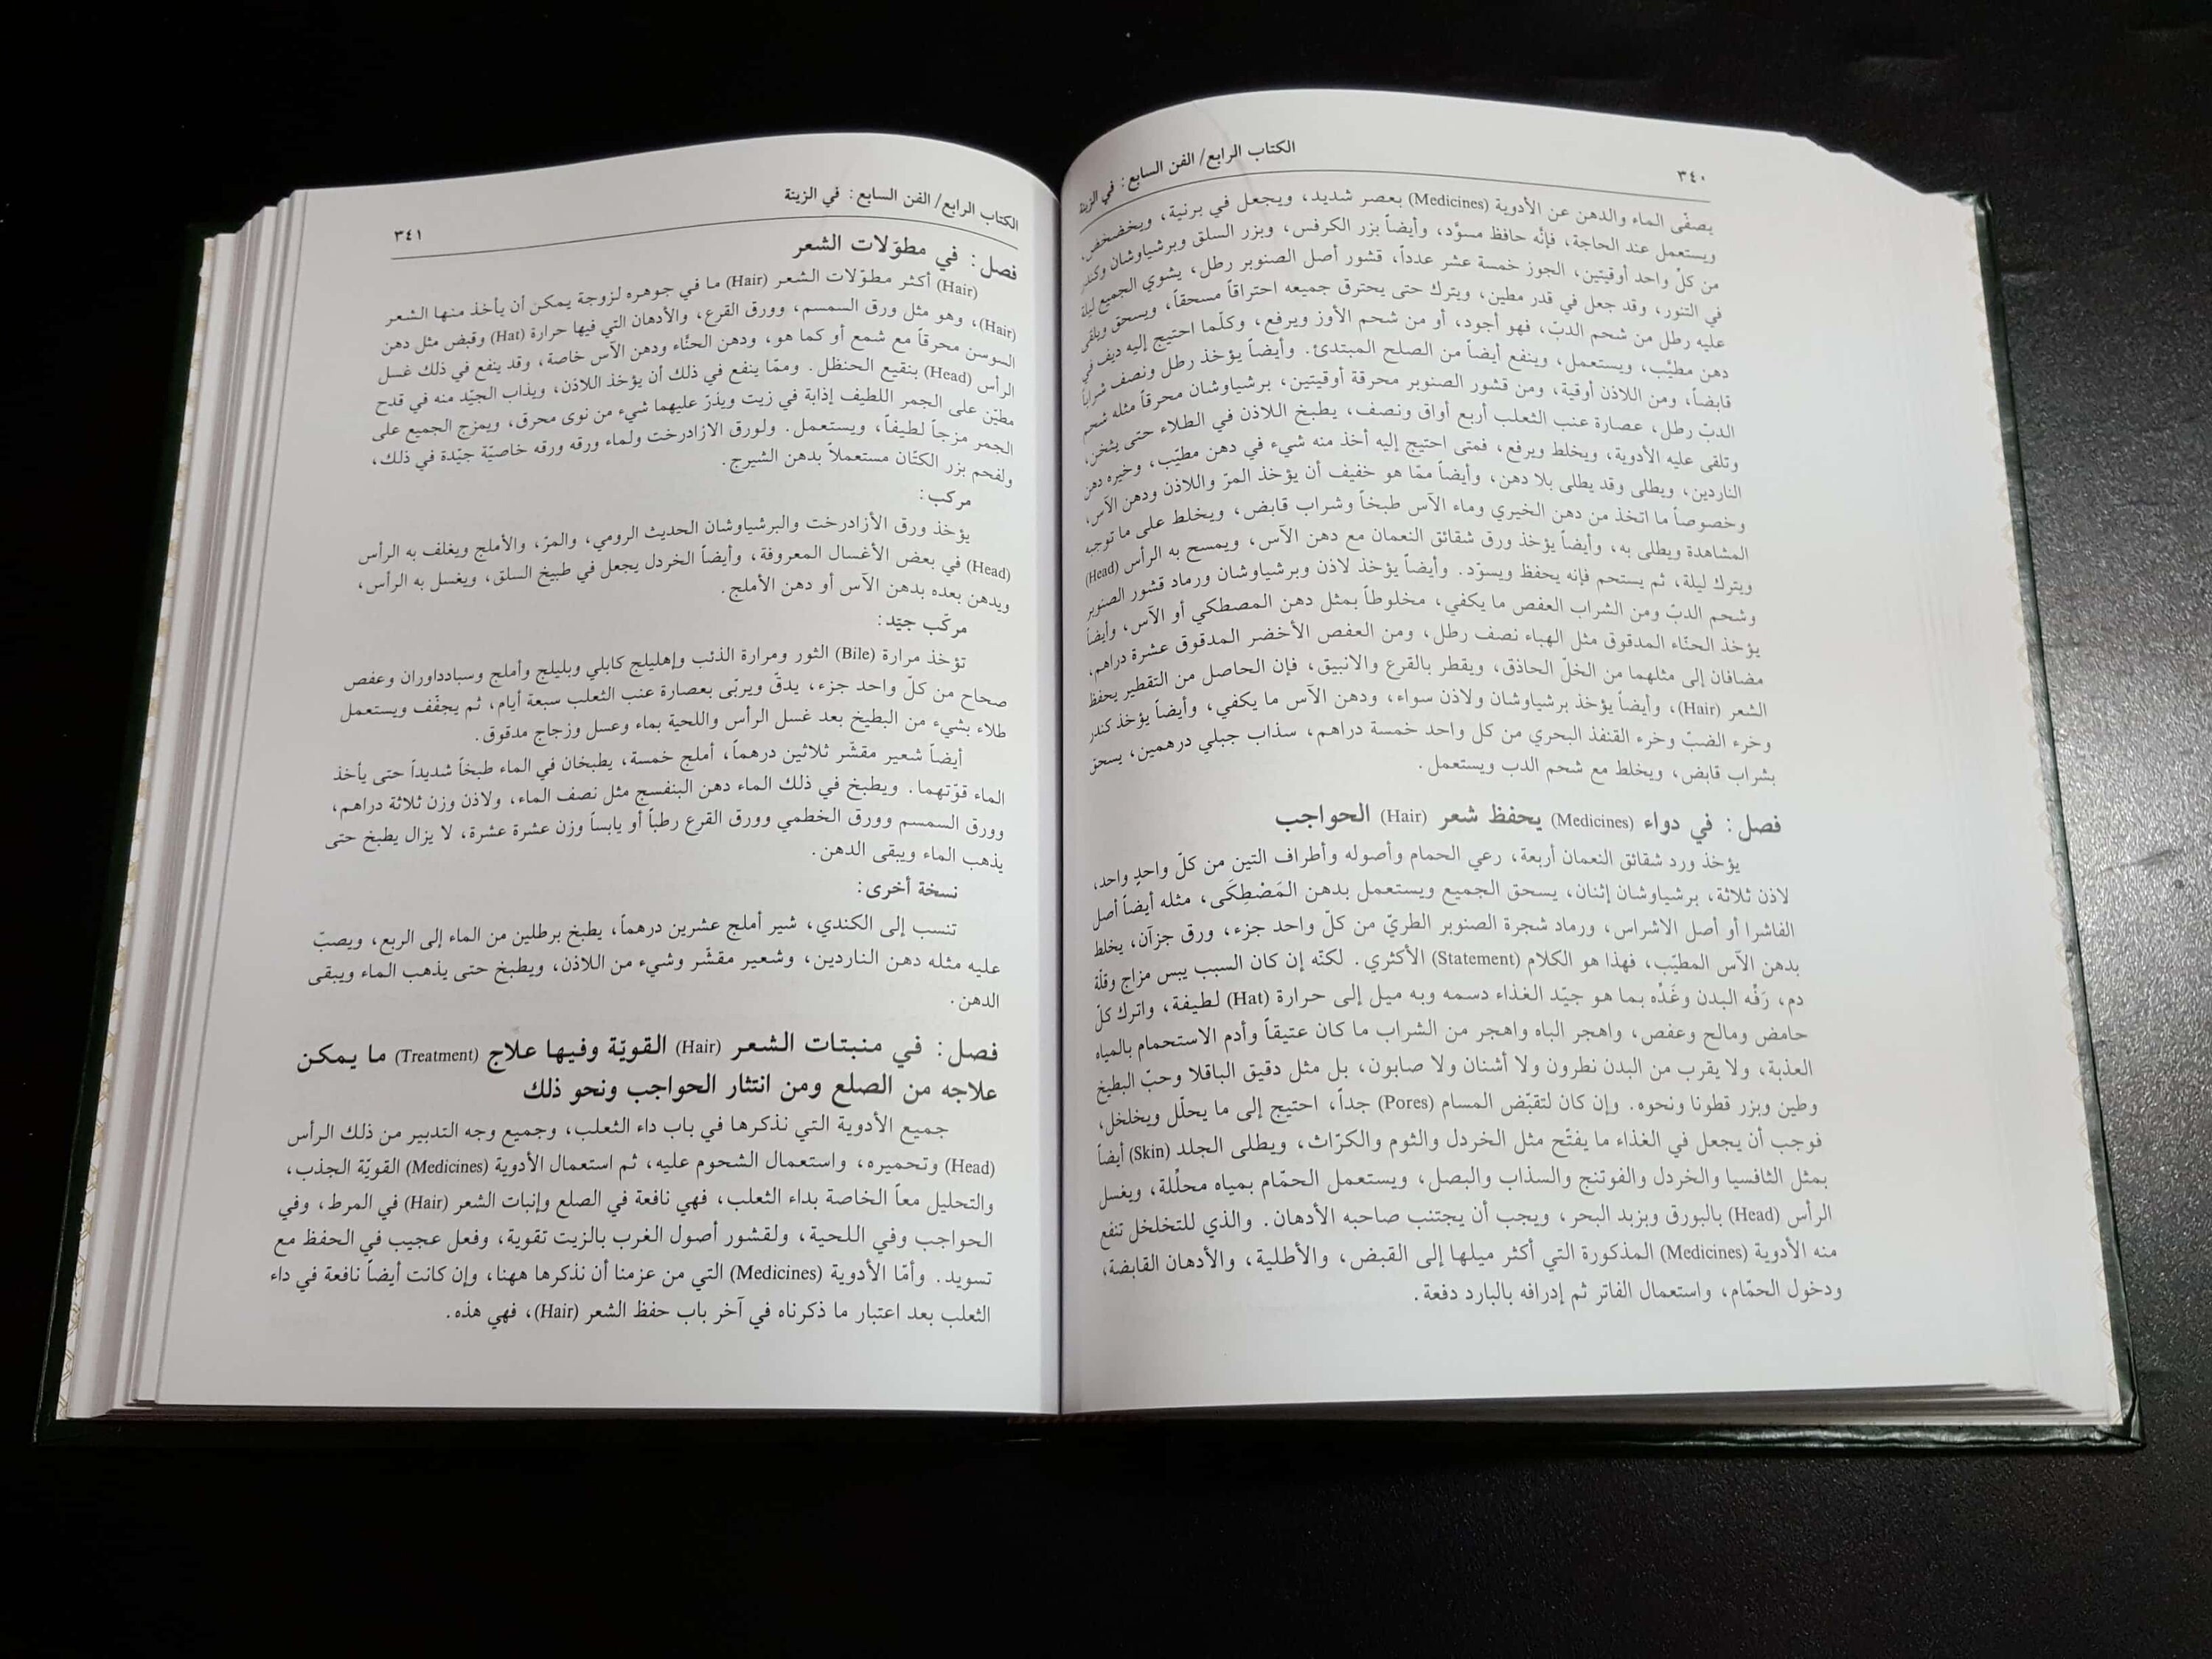 ٣٤٠
الكتاب الرابع/ الفن السابع: في الزينة
يصفّى الماء والدهن عن الأدوية (Medicines) بعصر شديد، ويجعل في برنية، ويخضخض.
ويستعمل عند الحاجة، فإنّه حافظ مسوّد، وأيضاً بزر الكرفس، وبزر السلق وبرشياوشان وكندر
من كلّ واحد أوقيتين، الجوز خمسة عشر عدداً، قشور أصل الصنوبر رطل، يشوي الجميع ليلة
في التنور، وقد جعل في قدر مطين، ويترك حتى يحترق جميعه احتراقاً مسحقاً، ويسحق ويلقى
عليه رطل من شحم الدبّ، فهو أجود، أو من شحم الأوز ويرفع، وكلّما احتيج إليه ديف في
دهن مطيَّب، ويستعمل، وينفع أيضاً من الصلح المبتدئ. وأيضاً يؤخذ رطل ونصف شراباً
قابضاً، ومن اللاذن أوقية، ومن قشور الصنوبر محرقة أوقيتين، برشياوشان محرقاً مثله شحم
الدبّ رطل، عصارة عنب الثعلب أربع أواق ونصف، يطبخ اللاذن في الطلاء حتى يثخن،
وتلقى عليه الأدوية، ويخلط ويرفع، فمتى احتيج إليه أخذ منه شيء في دهن مطيّب، وخيره دهن
الناردين، ويطلى وقد يطلى بلا دهن، وأيضاً ممّا هو خفيف أن يؤخذ المرّ واللاذن ودهن الآس،
وخصوصاً ما اتخذ من دهن الخيري وماء الآس طبخاً وشراب قابض، ويخلط على ما توجبه
المشاهدة ويطلى به، وأيضاً يؤخذ ورق شقائق النعمان مع دهن الآس، ويمسح به الرأس (Head)
ويترك ليلة، ثم يستحم فإنه يحفظ ويسوّد. وأيضاً يؤخذ لاذن وبرشياوشان ورماد قشور الصنوبر
وشحم الدبّ ومن الشراب العفص ما يكفي، مخلوطاً بمثل دهن المصطكي أو الآس، وأيضاً
يؤخذ الحنّاء المدقوق مثل الهباء نصف رطل، ومن العفص الأخضر المدقوق عشرة دراهم،
مضافان إلى مثلهما من الخلّ الحاذق، ويقطر بالقرع والانبيق، فإن الحاصل من التقطير يحفظ
الشعر (Hair)، وأيضاً يؤخذ برشياوشان ولاذن سواء، ودهن الآس ما يكفي، وأيضاً يؤخذ كندر
وخرء الضبّ وخرء القنفذ البحري من كل واحد خمسة دراهم، سذاب جبلي درهمين، يسحق
بشراب قابض، ويخلط مع شحم الدب ويستعمل.
فصل: في دواء (Medicines) يحفظ شعر (Hair) الحواجب
يؤخذ ورد شقائق النعمان أربعة، رعي الحمام وأصوله وأطراف التين من كلّ واحدٍ واحد،
لاذن ثلاثة، برشياوشان إثنان، يسحق الجميع ويستعمل بدهن المَصْطِكَى، مثله أيضاً أصل
الفاشرا أو أصل الاشراس، ورماد شجرة الصنوبر الطريّ من كلّ واحد جزء، ورق جزآن، يخلط
بدهن الآس المطيّب، فهذا هو الكلام (Statement) الأكثري. لكنّه إن كان السبب يبس مزاج وقلّة
دم، رَفّه البدن وغَذّه بما هو جيّد الغذاء دسمه وبه ميل إلى حرارة (Hat) لطيفة، واترك كلّ
حامض ومالح وعفص، واهجر الباه واهجر من الشراب ما كان عتيقاً وأدم الاستحمام بالمياه
العذبة، ولا يقرب من البدن نطرون ولا أشنان ولا صابون، بل مثل دقيق الباقلا وحبّ البطيخ
وطين وبزر قطونا ونحوه. وإن كان لتقبّض المسام (Pores) جداً، احتيج إلى ما يحلّل ويخلخل،
فوجب أن يجعل في الغذاء ما يفتّح مثل الخردل والثوم والكرّاث، ويطلى الجلد (Skin) أيضاً
بمثل الثافسيا والخردل والفوتنج والسذاب والبصل، ويستعمل الحمّام بمياه محلّلة، ويغسل
الرأس (Head) بالبورق وبزبد البحر، ويجب أن يجتنب صاحبه الأدهان. والذي للتخلخل تنفع
منه الأدوية (Medicines) المذكورة التي أكثر ميلها إلى القبض، والأطلية، والأدهان القابضة،
ودخول الحمّام، واستعمال الفاتر ثم إدرافه بالبارد دفعة.
الكتاب الرابع/ الفن السابع: في الزينة
٣٤١
فصل: في مطوّلات الشعر
(Hair) أكثر مطوّلات الشعر (Hair) ما في جوهره لزوجة يمكن أن يأخذ منها الشعر
(Hair)، وهو مثل ورق السمسم، وورق القرع، والأدهان التي فيها حرارة (Hat) وقبض مثل دهن
السوسن محرقاً مع شمع أو كما هو، ودهن الحنّاء ودهن الآس خاصة، وقد ينفع في ذلك غسل
الرأس (Head) بنقيع الحنظل. وممّا ينفع في ذلك أن يؤخذ اللاذن، ويذاب الجيّد منه في قدح
مطيّن على الجمر اللطيف إذابة في زيت ويذرّ عليهما شيء من نوى محرق، ويمزج الجميع على
الجمر مزجاً لطيفاً، ويستعمل. ولورق الازادرخت ولماء ورقه ورقه خاصيّة جيّدة في ذلك،
ولفحم بزر الكتّان مستعملاً بدهن الشيرج.
مركب:
يؤخذ ورق الأزادرخت والبرشياوشان الحديث الرومي، والمرّ، والأملج ويغلف به الرأس
(Head) في بعض الأغسال المعروفة، وأيضاً الخردل يجعل في طبيخ السلق، ويغسل به الرأس،
ويدهن بعده بدهن الآس أو دهن الأملج.
مركّب جيّد:
تؤخذ مرارة (Bile) الثور ومرارة الذئب وإهليلج كابلي وبليلج وأملج وسبادداوران وعفص
صحاح من كلّ واحد جزء، يدقّ ويربّى بعصارة عنب الثعلب سبعة أيام، ثم يجفّف ويستعمل
طلاء بشيء من البطيخ بعد غسل الرأس واللحية بماء وعسل وزجاج مدقوق.
أيضاً شعير مقشّر ثلاثين درهماً، أملج خمسة، يطبخان في الماء طبخاً شديداً حتى يأخذ
الماء قوّتهما. ويطبخ في ذلك الماء دهن البنفسج مثل نصف الماء، ولاذن وزن ثلاثة دراهم،
وورق السمسم وورق الخطمي وورق القرع رطباً أو يابساً وزن عشرة عشرة، لا يزال يطبخ حتى
يذهب الماء ويبقى الدهن.
نسخة أخرى:
تنسب إلى الكندي، شير أملج عشرين درهماً، يطبخ برطلين من الماء إلى الربع، ويصبّ
عليه مثله دهن الناردين، وشعير مقشّر وشيء من اللاذن، ويطبخ حتى يذهب الماء ويبقى
الدهن.
فصل: في منبتات الشعر (Hair) القويّة وفيها علاج (Treatment) ما يمكن
علاجه من الصلع ومن انتثار الحواجب ونحو ذلك
جميع الأدوية التي نذكرها في باب داء الثعلب، وجميع وجه التدبير من ذلك الرأس
(Head) وتحميره، واستعمال الشحوم عليه، ثم استعمال الأدوية (Medicines) القويّة الجذب،
والتحليل معاً الخاصة بداء الثعلب، فهي نافعة في الصلع وإنبات الشعر (Hair) في المرط، وفي
الحواجب وفي اللحية، ولقشور أصول الغرب بالزيت تقوية، وفعل عجيب في الحفظ مع
تسويد. وأمّا الأدوية (Medicines) التي من عزمنا أن نذكرها ههنا، وإن كانت أيضاً نافعة في داء
الثعلب بعد اعتبار ما ذكرناه في آخر باب حفظ الشعر (Hair)، فهي هذه.